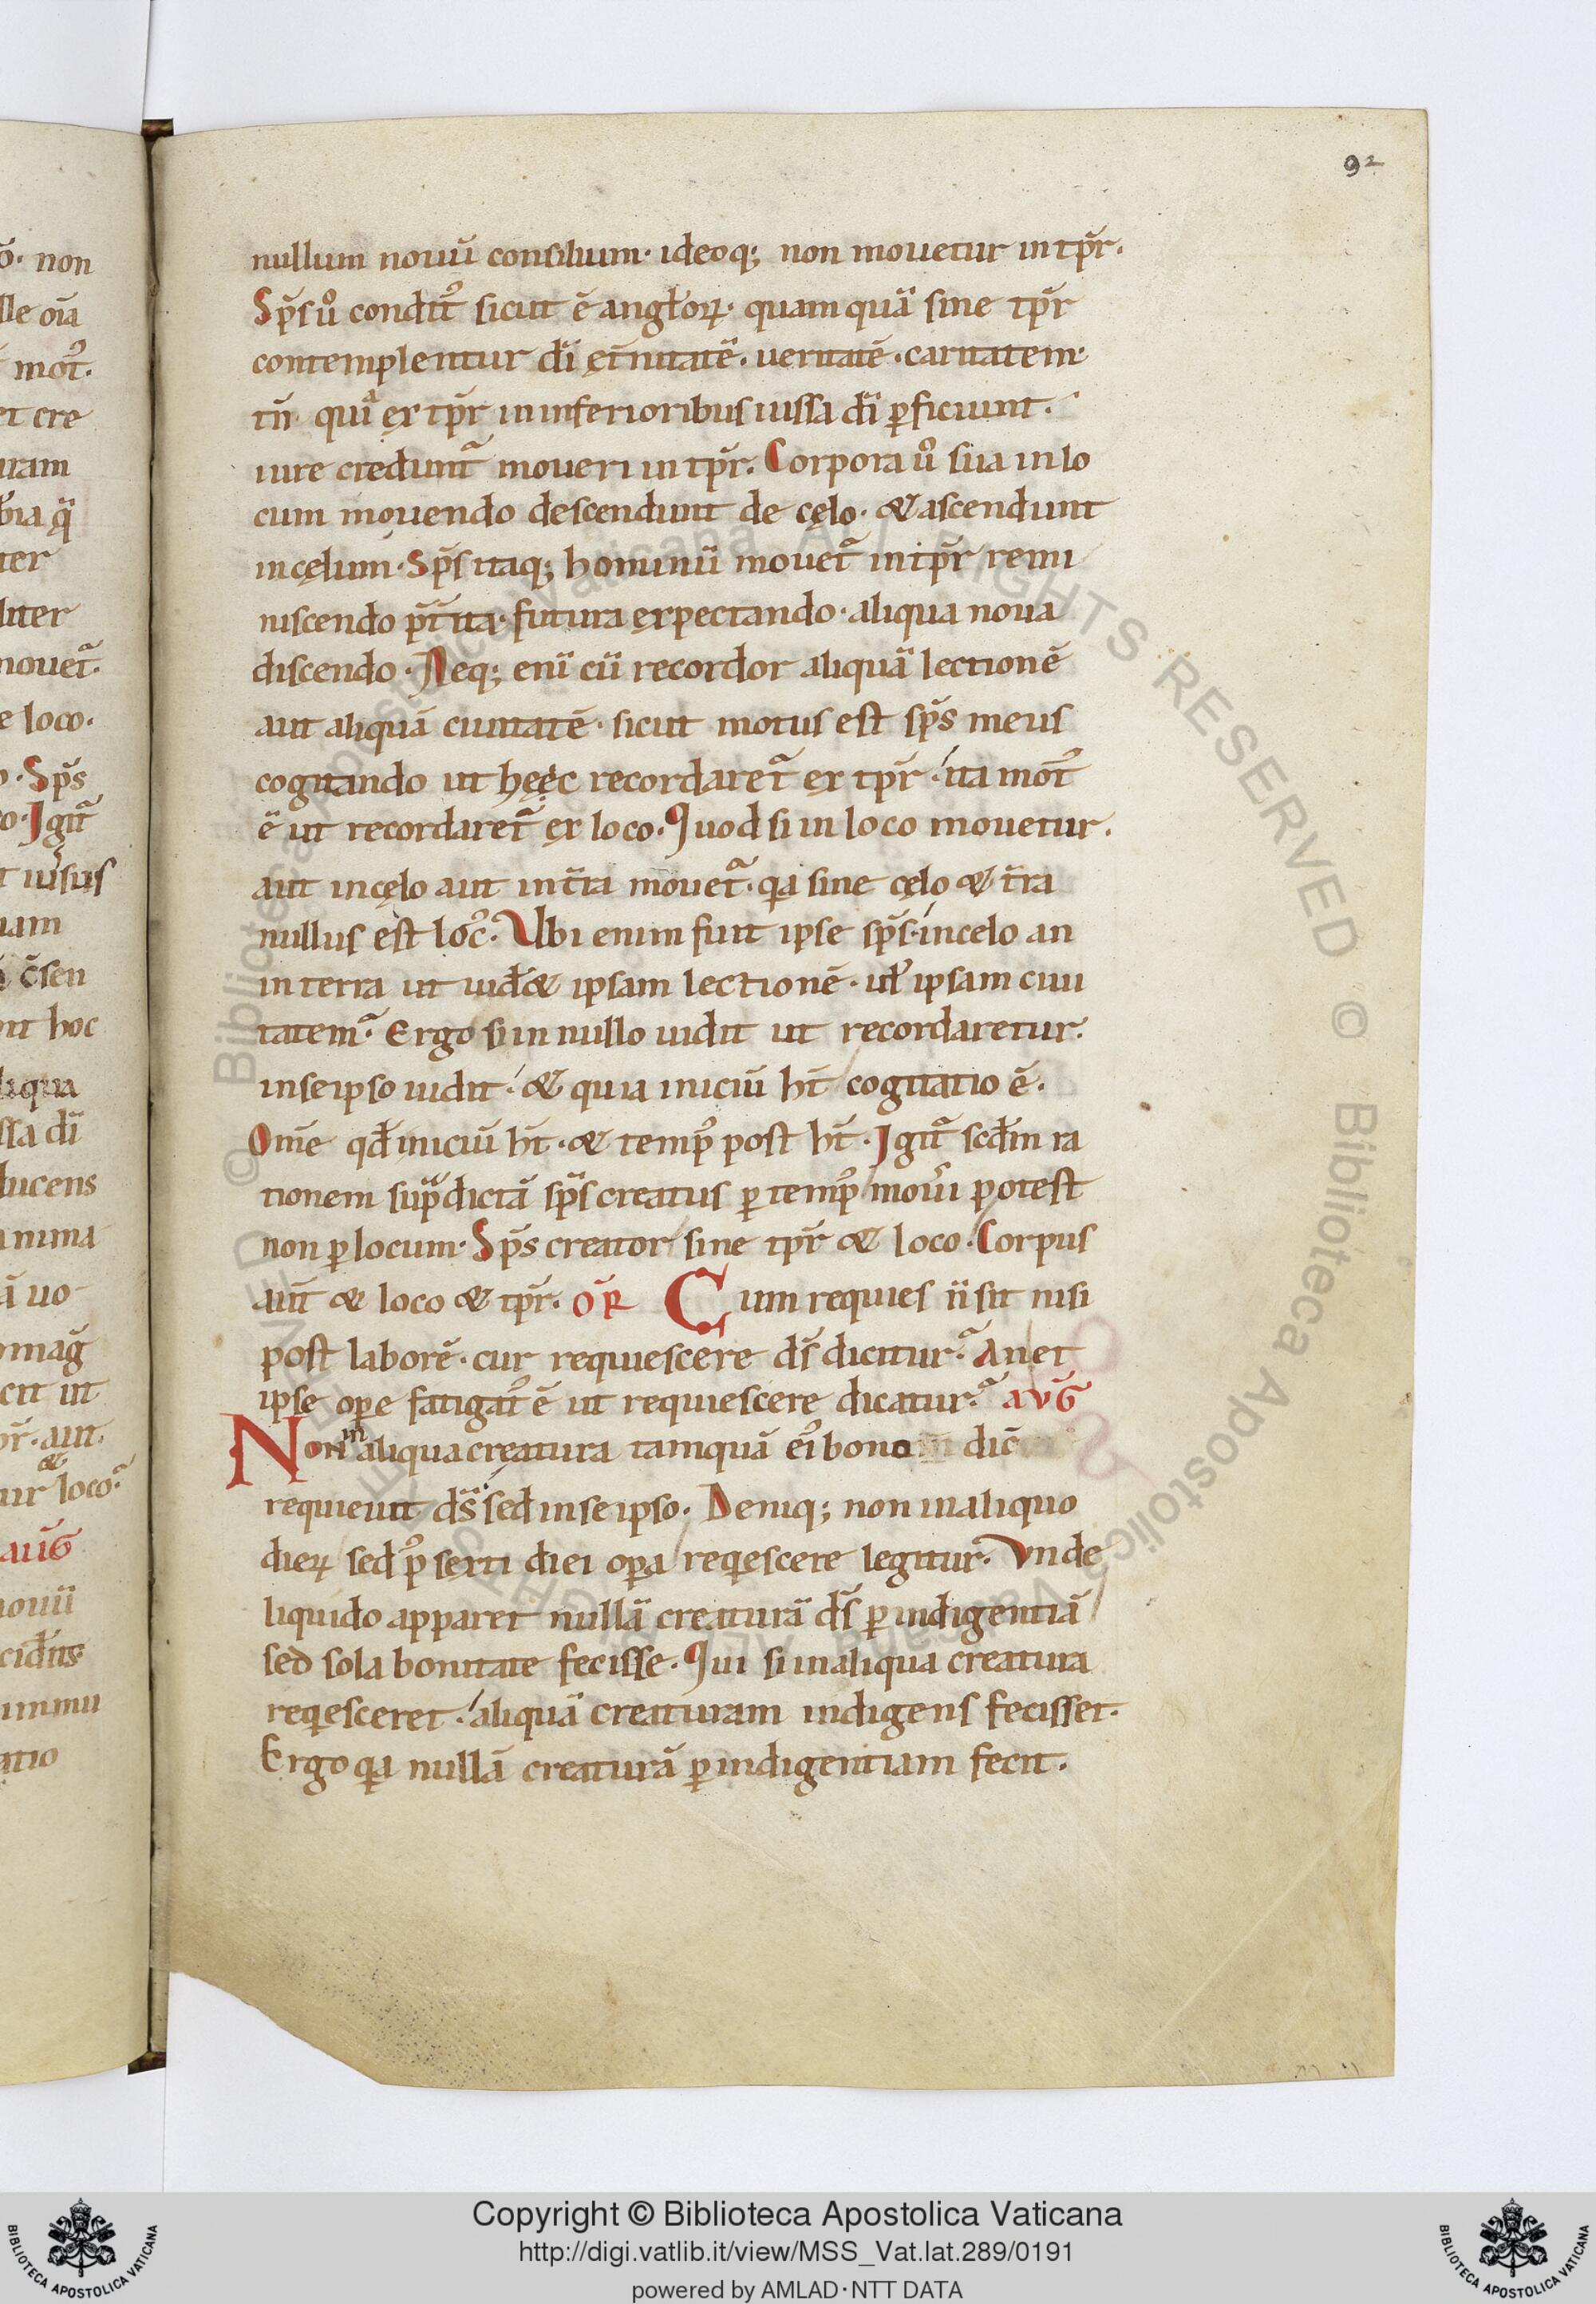 92
nullum nouū consilium· ideoq; non mouetur in tp̄r.
Sp̄s ů condit᷒ sicut ē angłoꝝ· quam quā sine tp̄r
contemplentur dī ęt̄nitatē· ueritatē· caritatem·
tn̄ quia ex tp̄r in inferioribus iussa dī ꝑficiunt.
iure credunt᷑ moueri in tp̄r. Corpora ů sua in lo
cum mouendo descendunt de cęlo· & ascendunt
in cęlum· Sp̄s itaq; hominū mouet᷑ in tp̄r remi
niscendo p̄t̄ita· futura expectando· aliqua noua
discendo· Neq; enī cū recordor aliquā lectionē
aut aliquā ciuitatē· sicut motus est sp̄s meus
cogitando ut hęęc recordaret᷑ ex tp̄r· ita mot᷒
ē ut recordaret᷑ ex loco. Quod si in loco mouetur.
aut in cęlo aut in t̄ra mouet᷑· q̣a sine cęlo & t̄ra
nullus est loc᷒. Vbi enim fuit ipse sp̄s· in celo an
in terra ut uid̄& ipsam lectionē· uł ipsam ciui
tatem? Ergo si in nullo uidit ut recordaretur.
in se ipso uidit· & quia iniciū ht̄ cogitatio ē.
Om̄e qđ iniciū ht̄· & temp᷒ post ht̄· Igit᷑ scđm ra
tionem sup̄dictā sp̄s creatus ꝑ temp᷒ mou̅i potest
non ꝑ locum· Sp̄s creator sine tp̄r & loco· Corpus
aut̄ & loco & tp̄r. OR̄ Cum requies n̄ sit nisi
post laborē· cur requiescere dś dicitur? An et
ipse oꝑe fatigat᷒ ē ut requiescere dicatur? AVḠ
Non in aliqua creatura tamquā ei᷒ bono dic̄
requieuit dś sed in se ipso. Deniq; non in aliquo
dieꝝ sed p᷒ sexti diei oꝑa reqescere legitur. Vnde
liquido apparet nullā creaturā dś ꝑ indigentiā
sed sola bonitate fecisse· Qui si in aliqua creatura
reqesceret· aliquā creaturam indigens fecisset·
Ergo q̣a nullā creaturā ꝑ indigentiam fecit.
Copyright © Biblioteca Apostolica Vaticana
http://digi.vatlib.it/view/MSS_Vat.lat.289/0191
powered by AMLAD·NTT DATA